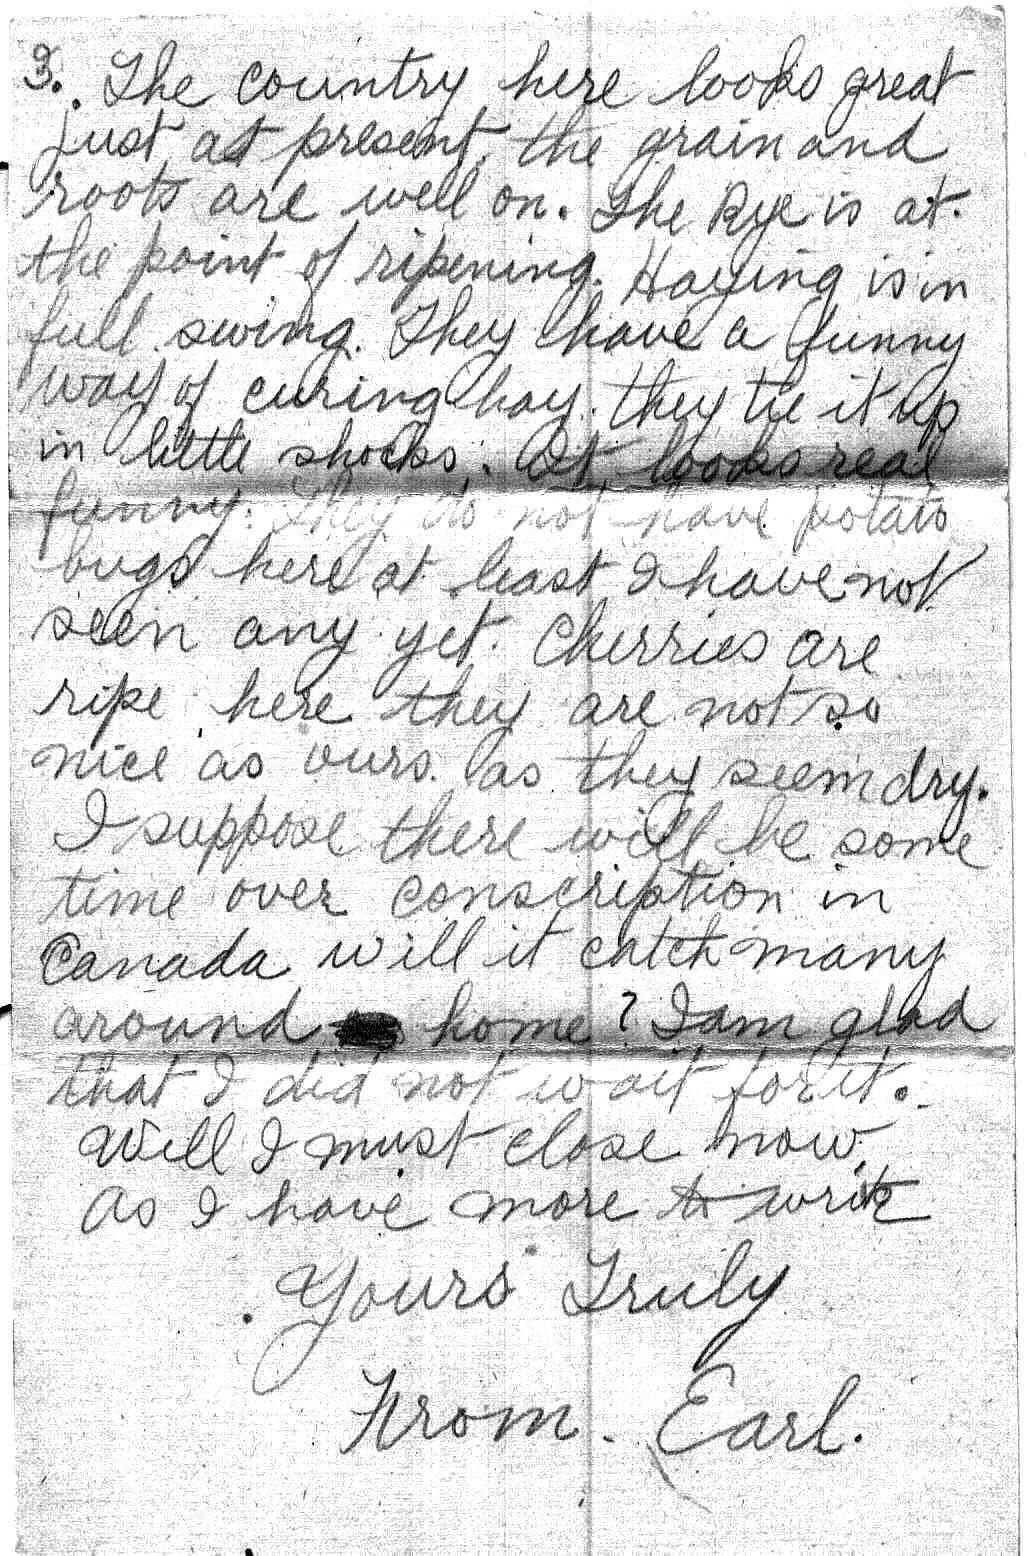 3. The country here looks great
just at present, the grain and
roots are well on. The Rye is at
the point of ripening. Haying is in
full swing. They have a funny
way of curing hay. they tie it up
in little shocks. It looks real
funny. They do not have potato
bugs here at least I have not
seen any yet. Cherries are
ripe here they are not so
nice as ours as they seem dry.
I suppose there will be some
time over conscription in
Canada will it catch many
around home? I am glad
that I did not wait for it.
Well I must close now
as I have more to write
Yours Truly
From. Earl.